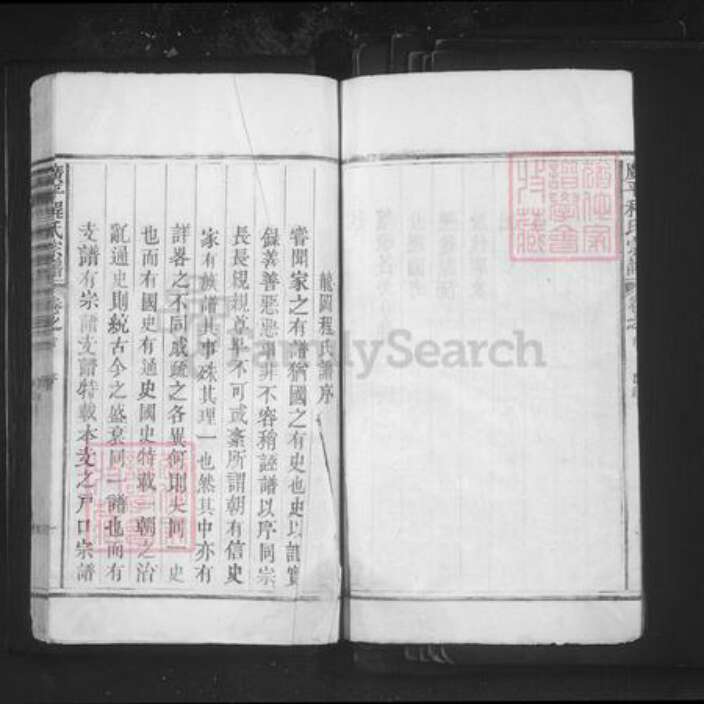 廣平程氏宗譜
龍岡程氏譜序
嘗聞家之有譜猶國之有史也史以誌實
錄善善惡惡是非不容稍誣譜以序同宗
長長親親尊卑不可或紊所謂朝有信史
家有族譜其事殊其理一也然其中亦有
詳畧之不同戚疏之各異何則夫同一史
也而有國史有通史國史特載一朝之治
亂通史則統古今之盛衰同一譜也而有
支譜有宗譜支譜特載本支之戸口宗譜
廣平程氏宗譜 卷之首 序
FamilySearch